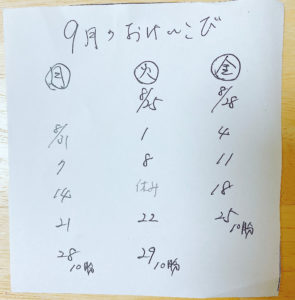 9月のおけいこび
月 火 金
8/25 8/28
8/31 1 4
7 8 11
14 休み 18
21 22 25 10月分
28 10月分 29 10月分